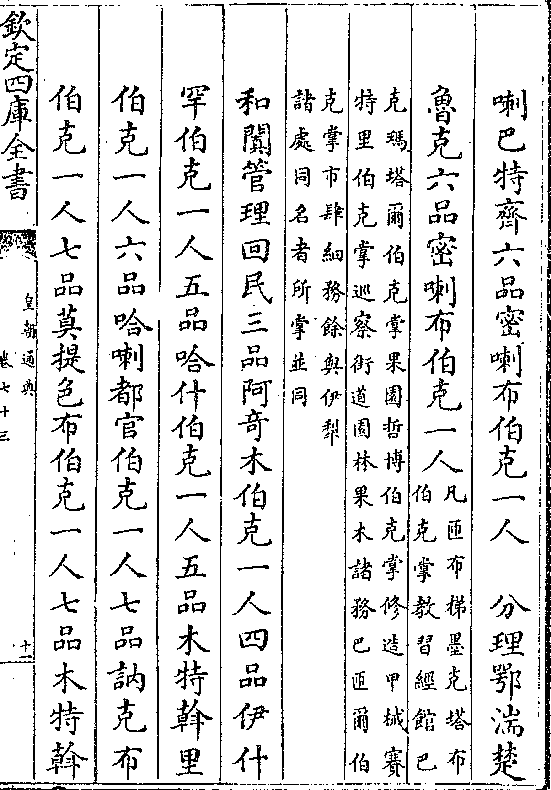 喇巴特齊六品密喇布伯克一人　分理鄂湍楚
魯克六品密喇布伯克一人
凡匝布梯墨克塔布
伯克掌教習經館巴
克瑪塔爾伯克掌果園哲博伯克掌修造甲械賽
特里伯克掌巡察街道園林果木諸務巴匝爾伯
克掌市肆細務餘與伊犁
諸處同名者所掌並同
和闐管理回民三品阿奇木伯克一人四品伊什
罕伯克一人五品哈什伯克一人五品木特斡里
伯克一人六品哈喇都官伯克一人七品訥克布
伯克一人七品莫提色布伯克一人七品木特斡
欽定四庫全書
皇朝通典
卷七十三
十一